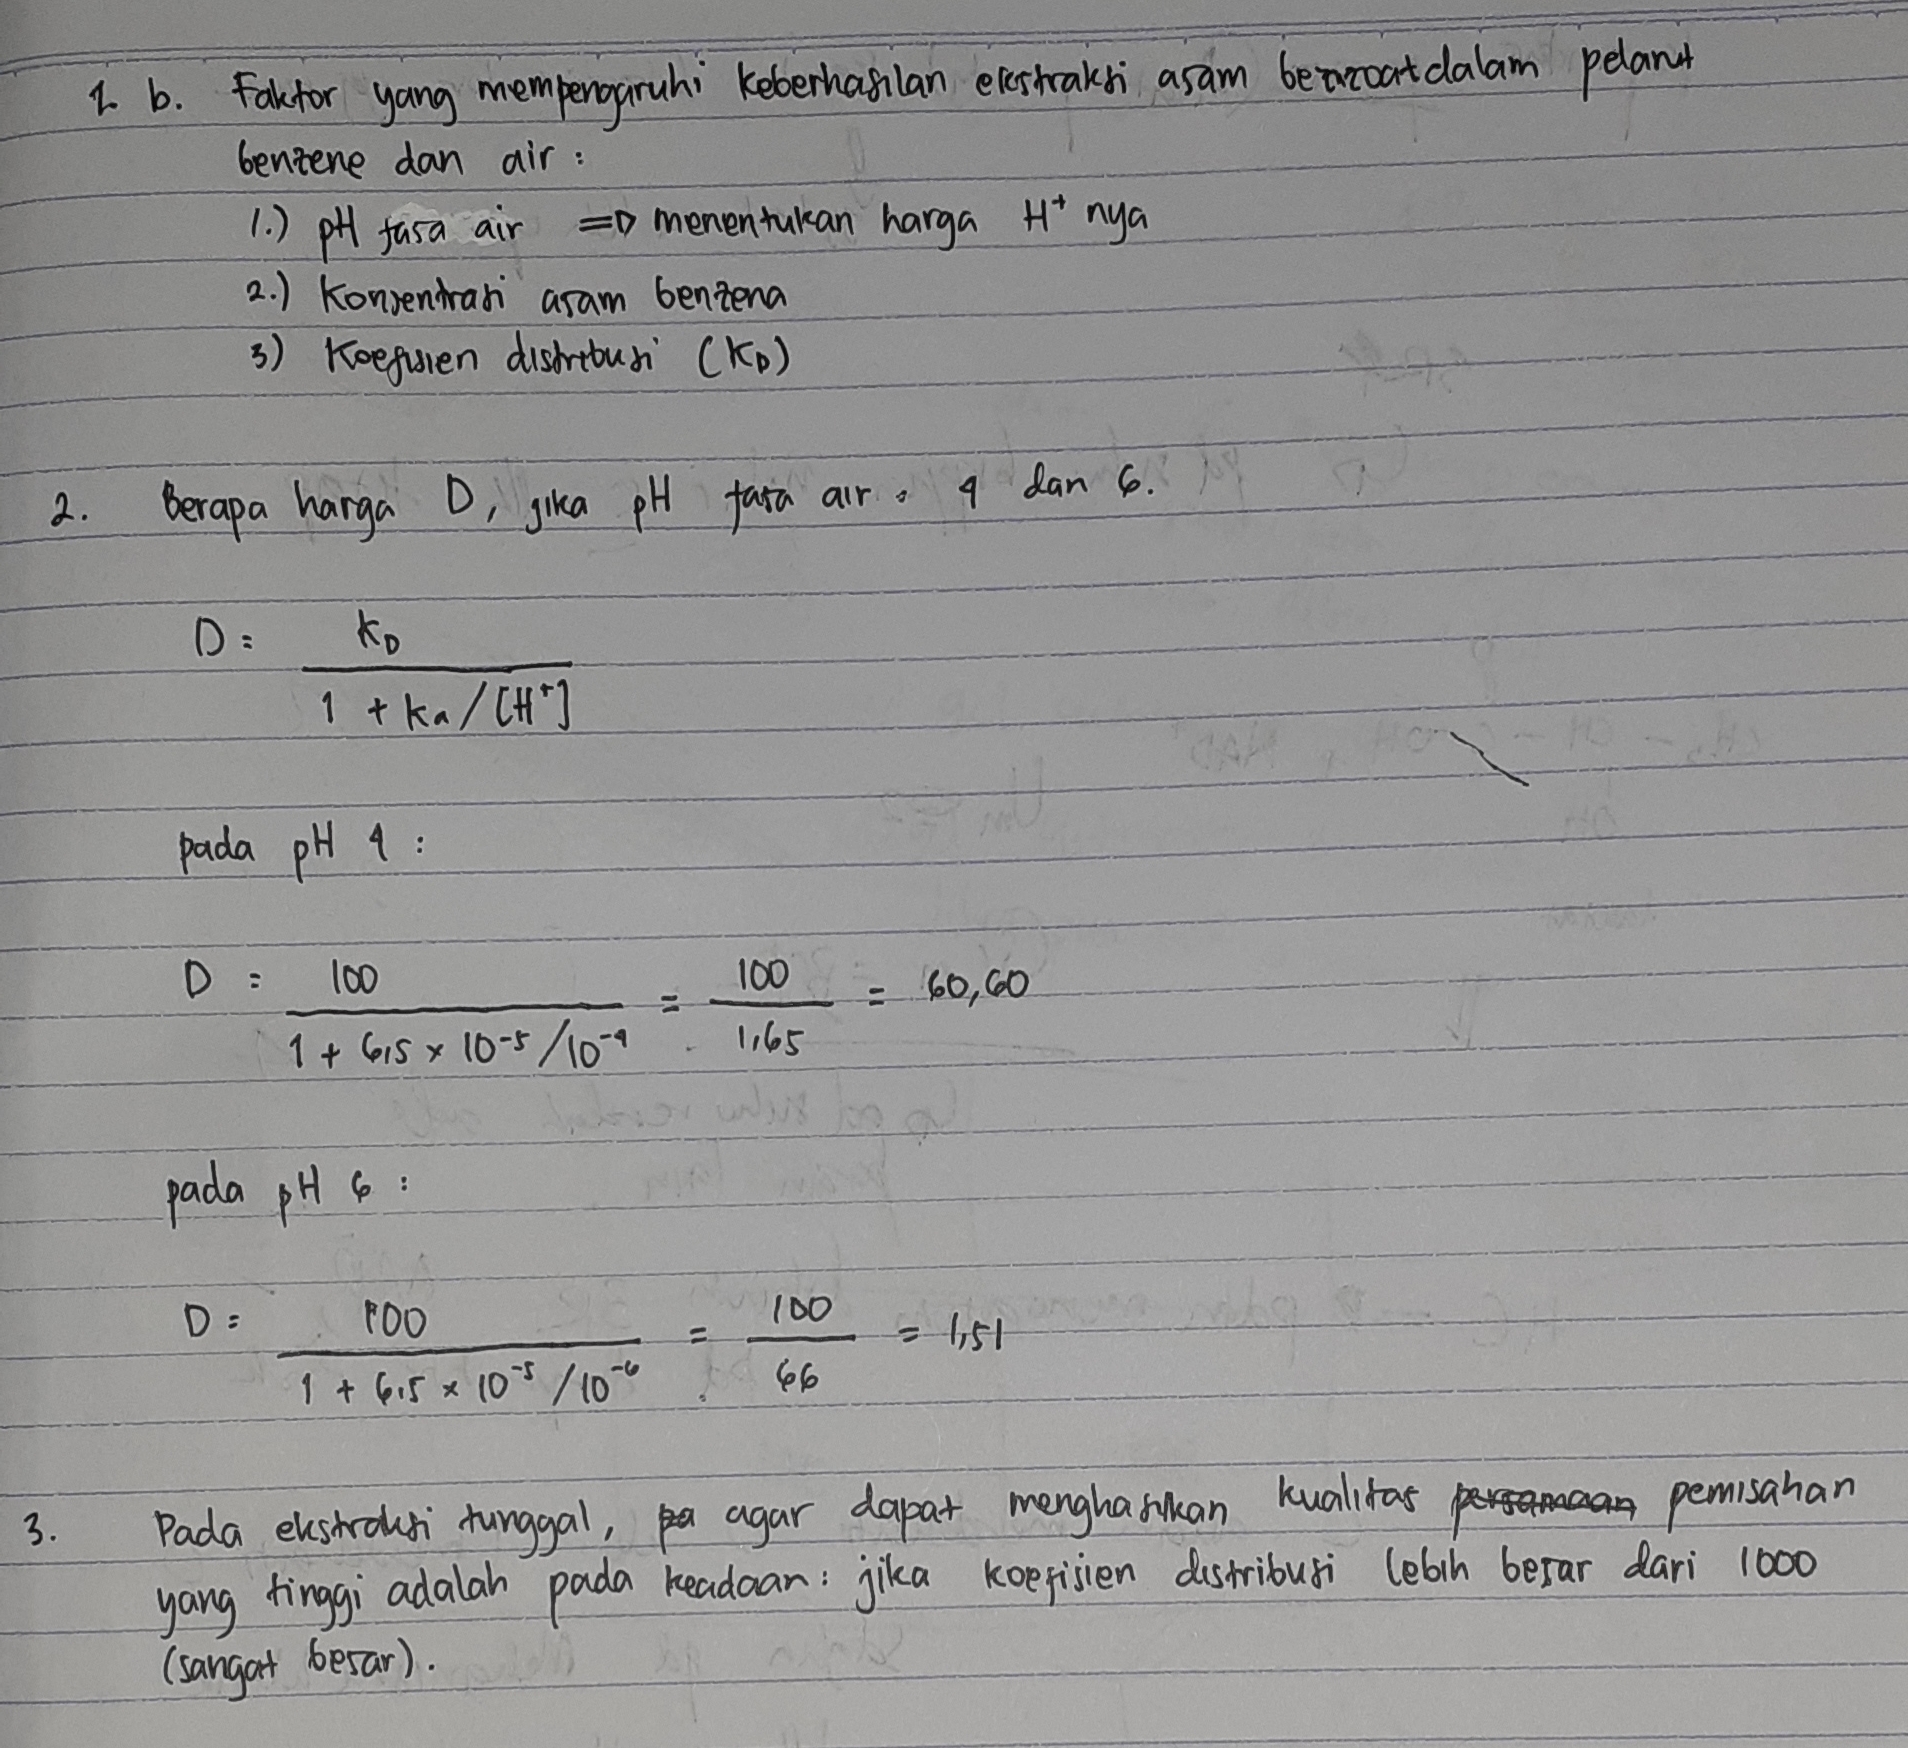 1 b. Faktor yang mempengaruhi keberhasilan ekstraksi asam benzoat dalam pelarut
benzene dan air :
1.) pH fasa air => menentukan harga H⁺ nya
2.) Konsentrasi asam benzena
3) Koefisien distribusi (K_D)
2. Berapa harga D, jika pH fasa air = 4 dan 6.
D = K_D / (1 + Ka/[H⁺])
pada pH 4 :
D = 100 / (1 + 6,5 × 10⁻⁵/10⁻⁴) = 100 / 1,65 = 60,60
pada pH 6 :
D = 100 / (1 + 6,5 × 10⁻⁵/10⁻⁶) = 100 / 66 = 1,51
3. Pada ekstraksi tunggal, pa agar dapat menghasilkan kualitas persamaan pemisahan
yang tinggi adalah pada keadaan : jika koefisien distribusi lebih besar dari 1000
(sangat besar).